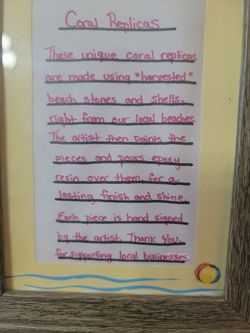 Coral Replicas
These unique coral replicas
are made using "harvested"
beach stones and shells,
right from our local beaches.
The artist then paints the
pieces and pours epoxy
resin over them, for a
lasting finish and shine.
Each piece is hand signed
by the artist. Thank You,
for supporting local businesses.